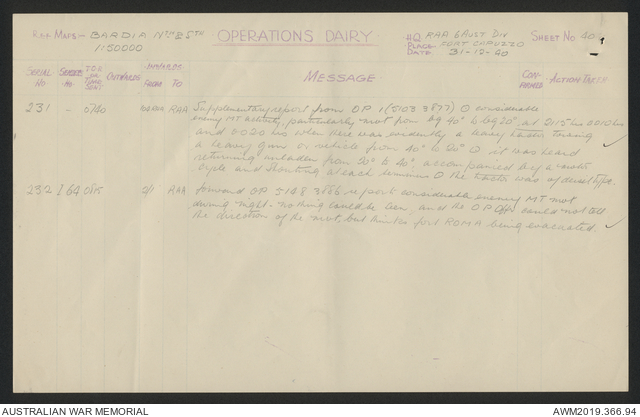 Ref Maps - BARDIA Nth & Sth OPERATIONS DAIRY HQ RAA 6 AUST DIV SHEET No 40
1:50000 PLACE FORT CAPUZZO
DATE 31-12-40
SERIAL No SENDERS No T.O.R. or T.O.D. SENT OUTWARDS INWARDS FROM TO MESSAGE CON-FIRMED ACTION TAKEN
231 - 0740 RAA Supplementary report from OP 1 (5103 3877) O considerable
enemy MT activity, particularly mot from bg 40° to bg 20° at 2115 hrs 0010 hrs
and 0020 hrs when there was evidently a heavy tractor towing
a heavy gun or vehicle from 40° to 20° O it was heard
returning unladen from 20° to 40°, accompanied by a motor
cycle and shouting at each terminus O the tractor was of diesel type.
232 I 64 0815 2/1 RAA forward OP 5148 3886 report considerable enemy MT mot
during night - nothing could be seen, and the OP Offr could not tell
the direction of the mot, but thinks fort ROMA being evacuated.
AUSTRALIAN WAR MEMORIAL AWM2019.366.94